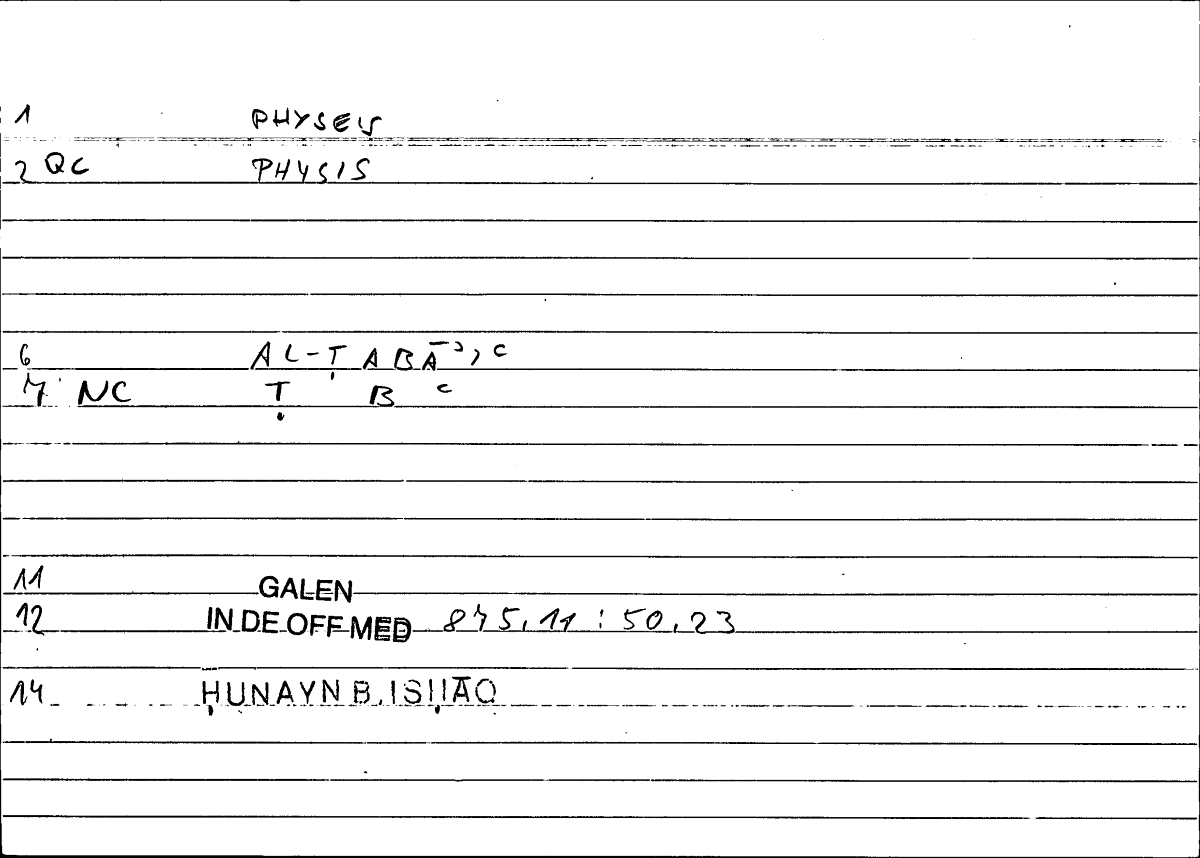 1 PHYSEIS
2 QC PHYSIS
6 AL-ṬABĀʾIʿ
7 NC Ṭ B ʿ
11 GALEN
12 IN DE OFF MED 875,11 : 50,23
14 ḤUNAYN B. ISḤĀQ